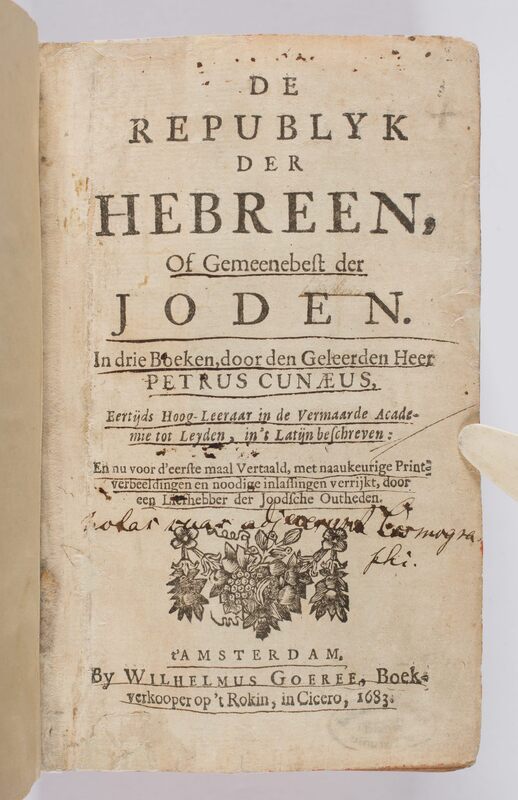 DE
REPUBLYK
DER
HEBREEN,
Of Gemeenebeſt der
JODEN.
In drie Boeken, door den Geleerden Heer
PETRUS CUNÆUS,
Eertijds Hoog-Leeraar in de Vermaarde Acade-
mie tot Leyden, in't Latijn beſchreven:
En nu voor d'eerſte maal Vertaald, met naaukeurige Print-
verbeeldingen en noodige inlaſſingen verrijkt, door
een Liefhebber der Joodſche Outheden.
notas suas adjecerunt Cosmogra
phi.
t'AMSTERDAM,
By WILHELMUS GOEREE, Boek-
verkooper op 't Rokin, in Cicero, 1683.